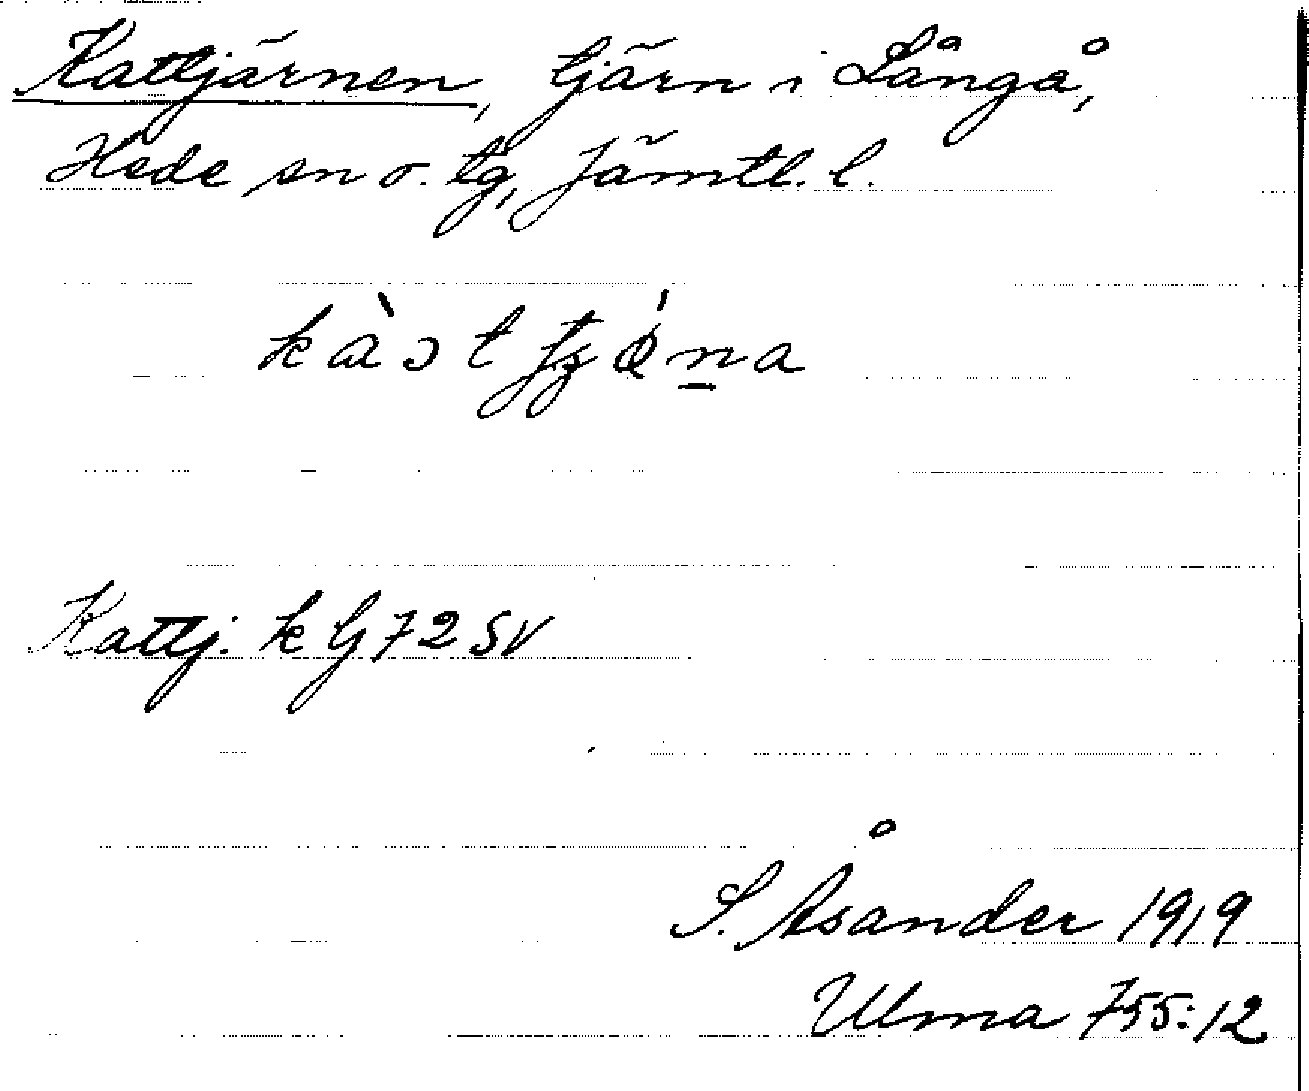 Kattjärnen, tjärn i Långå,
Hede sn o. tg, Jämtl. l.
Kattj. k G72 SV
S. Åsander 1919
Ulma 755:12